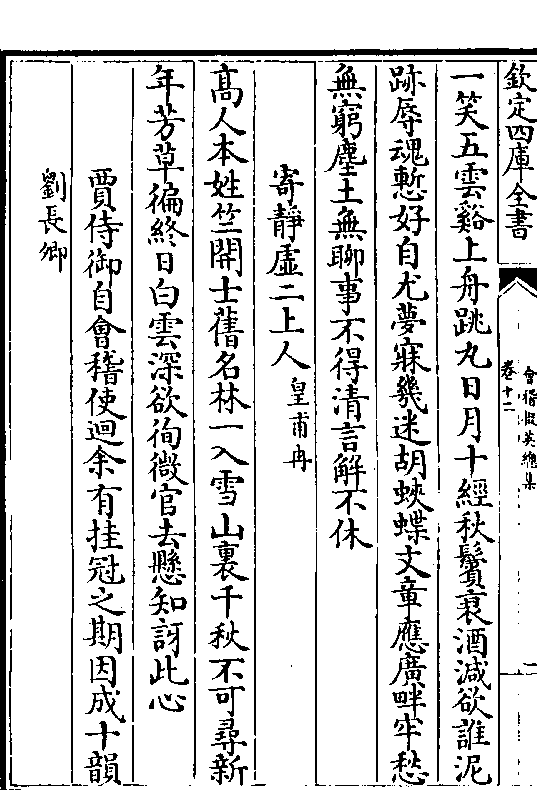 欽定四庫全書
會稽掇英總集
卷十二
一
一笑五雲谿上舟跳丸日月十經秋鬢衰酒減欲誰泥
跡辱魂慙好自尤夢寐幾迷胡蛺蝶文章應廣畔牢愁
無窮塵土無聊事不得清言解不休
寄靜虛二上人 皇甫冉
髙人本姓竺開士舊名林一入雪山裏千秋不可尋新
年芳草徧終日白雲深欲徇微官去懸知訝此心
賈侍御自會稽使迴余有挂冠之期因成十韻
劉長卿